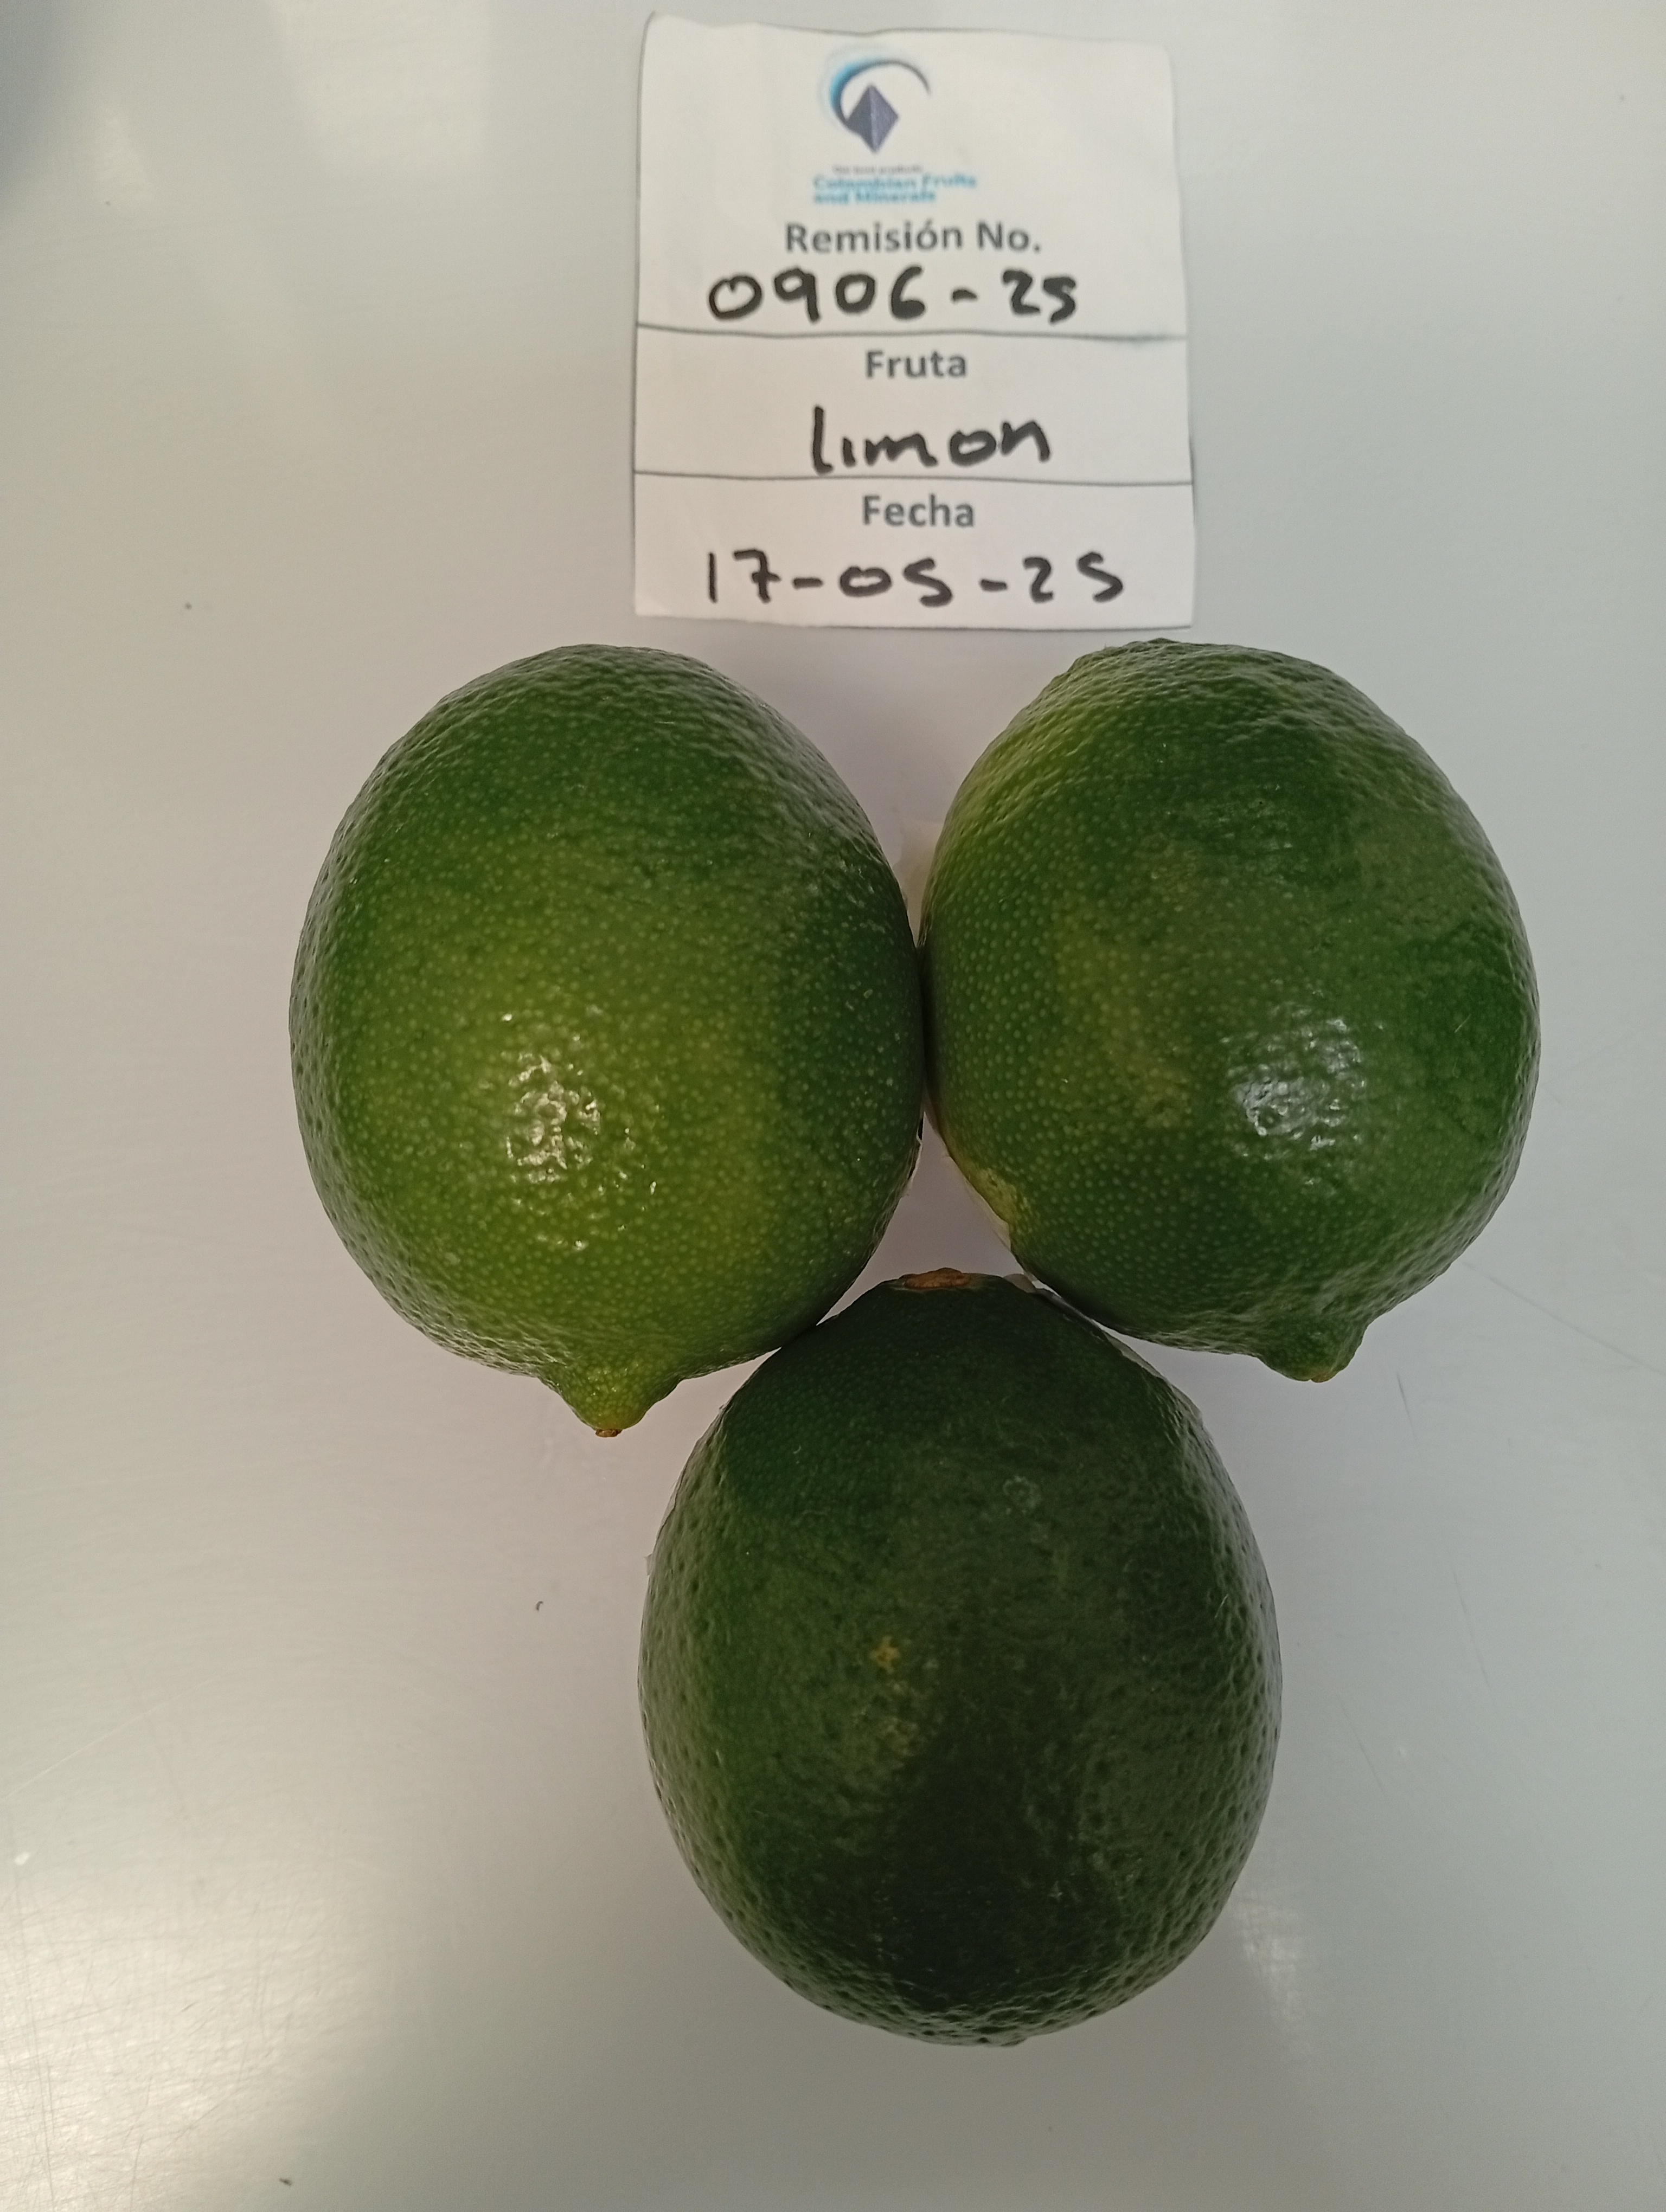 Colombian Fruits
and Minerals
Remisión No.
0906-25
Fruta
limon
Fecha
17-05-25